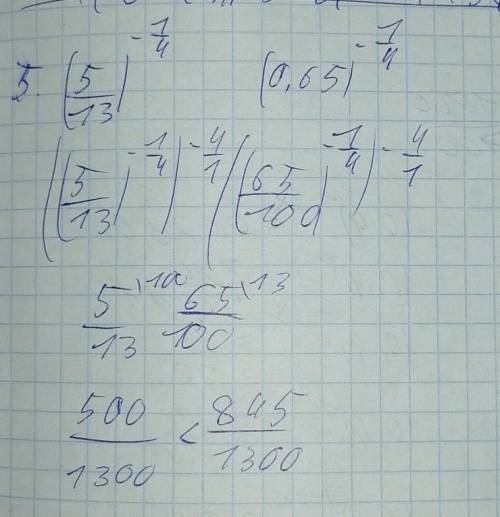 5. (5/13)^(-1/4) (0,65)^(-1/4)
((5/13)^(-1/4))^(-4/1) ((65/100)^(-1/4))^(-4/1)
5/13 \100 65/100 \13
500/1300 < 845/1300